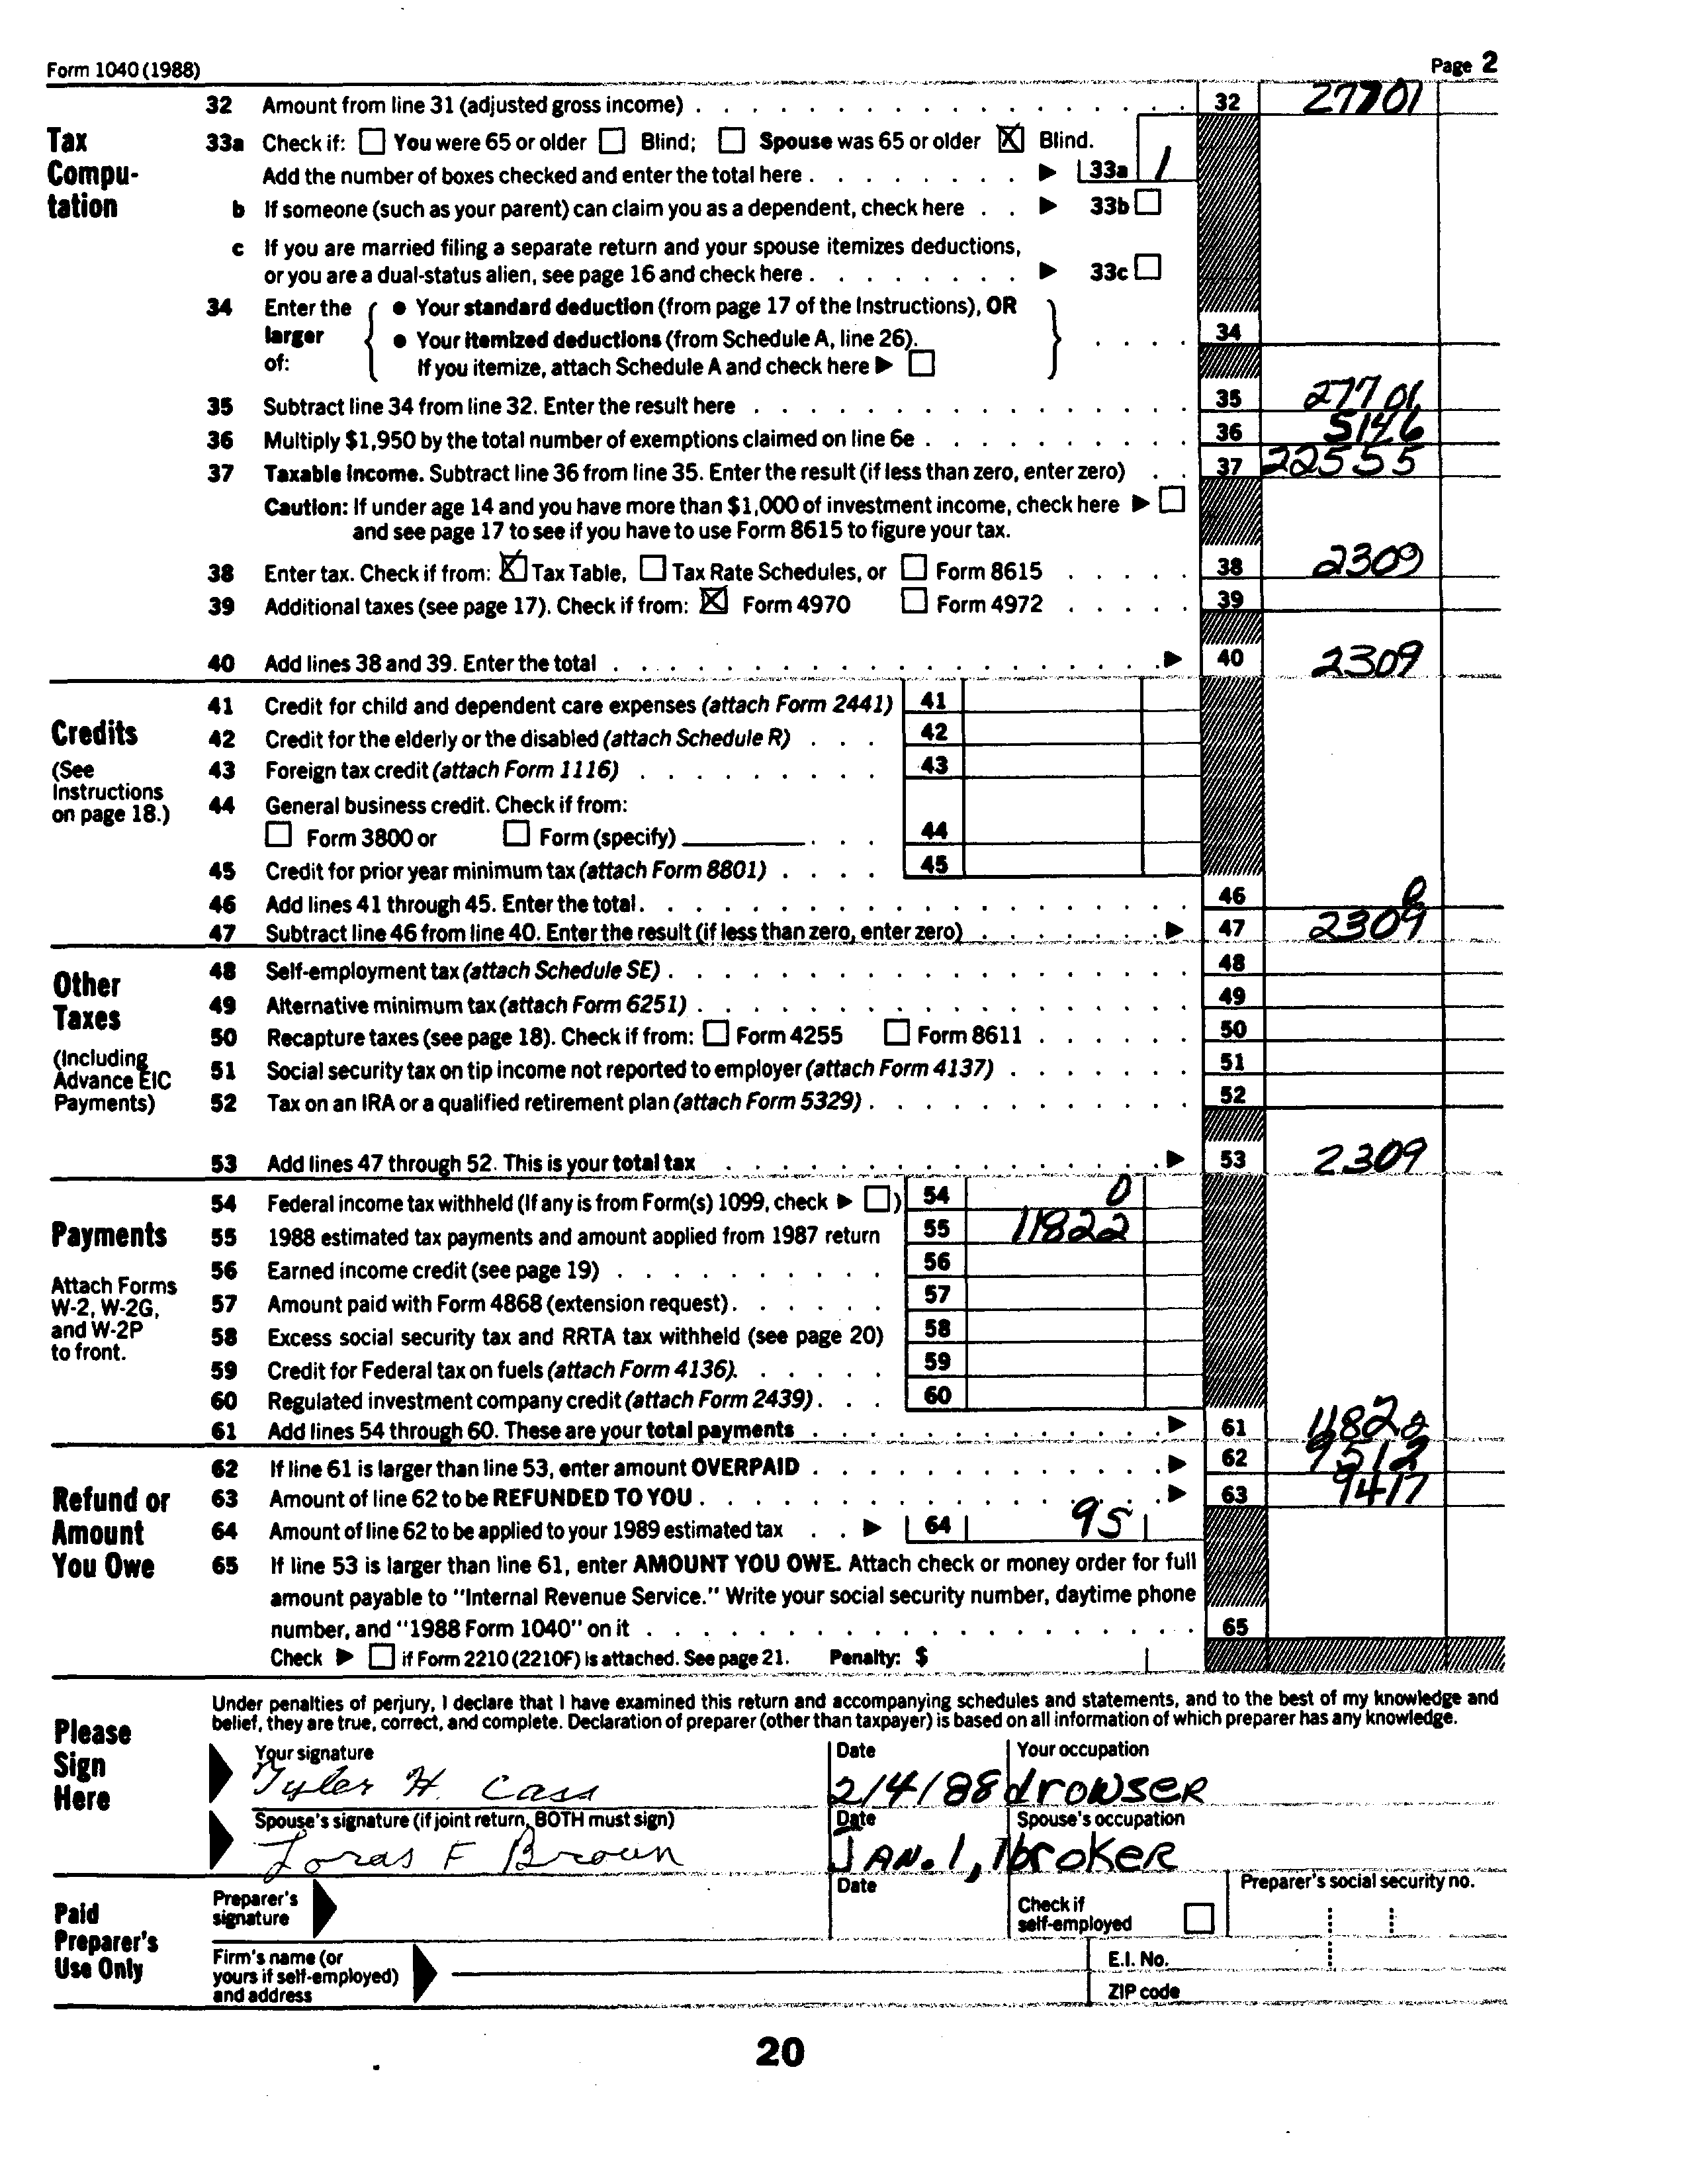 Form 1040 (1988) Page 2
Tax Computation
32 Amount from line 31 (adjusted gross income) 32 27701
33a Check if: ☐ You were 65 or older ☐ Blind; ☐ Spouse was 65 or older ☒ Blind.
Add the number of boxes checked and enter the total here ▶ 33a 1
b If someone (such as your parent) can claim you as a dependent, check here ▶ 33b ☐
c If you are married filing a separate return and your spouse itemizes deductions,
or you are a dual-status alien, see page 16 and check here ▶ 33c ☐
34 Enter the larger of: { ● Your standard deduction (from page 17 of the Instructions), OR
● Your itemized deductions (from Schedule A, line 26). } 34
If you itemize, attach Schedule A and check here ▶ ☐
35 Subtract line 34 from line 32. Enter the result here 35 27701
36 Multiply $1,950 by the total number of exemptions claimed on line 6e 36 5146
37 Taxable income. Subtract line 36 from line 35. Enter the result (if less than zero, enter zero) 37 22555
Caution: If under age 14 and you have more than $1,000 of investment income, check here ▶ ☐
and see page 17 to see if you have to use Form 8615 to figure your tax.
38 Enter tax. Check if from: ☒ Tax Table, ☐ Tax Rate Schedules, or ☐ Form 8615 38 2309
39 Additional taxes (see page 17). Check if from: ☒ Form 4970 ☐ Form 4972 39
40 Add lines 38 and 39. Enter the total ▶ 40 2309
Credits
(See Instructions on page 18.)
41 Credit for child and dependent care expenses (attach Form 2441) 41
42 Credit for the elderly or the disabled (attach Schedule R) 42
43 Foreign tax credit (attach Form 1116) 43
44 General business credit. Check if from:
☐ Form 3800 or ☐ Form (specify) 44
45 Credit for prior year minimum tax (attach Form 8801) 45
46 Add lines 41 through 45. Enter the total. 46
47 Subtract line 46 from line 40. Enter the result (if less than zero, enter zero) ▶ 47 2309
Other Taxes
(Including Advance EIC Payments)
48 Self-employment tax (attach Schedule SE) 48
49 Alternative minimum tax (attach Form 6251) 49
50 Recapture taxes (see page 18). Check if from: ☐ Form 4255 ☐ Form 8611 50
51 Social security tax on tip income not reported to employer (attach Form 4137) 51
52 Tax on an IRA or a qualified retirement plan (attach Form 5329) 52
53 Add lines 47 through 52. This is your total tax ▶ 53 2309
Payments
Attach Forms W-2, W-2G, and W-2P to front.
54 Federal income tax withheld (If any is from Form(s) 1099, check ▶ ☐) 54 0
55 1988 estimated tax payments and amount applied from 1987 return 55 11822
56 Earned income credit (see page 19) 56
57 Amount paid with Form 4868 (extension request) 57
58 Excess social security tax and RRTA tax withheld (see page 20) 58
59 Credit for Federal tax on fuels (attach Form 4136). 59
60 Regulated investment company credit (attach Form 2439) 60
61 Add lines 54 through 60. These are your total payments ▶ 61 11822
62 If line 61 is larger than line 53, enter amount OVERPAID ▶ 62 9512
Refund or Amount You Owe
63 Amount of line 62 to be REFUNDED TO YOU ▶ 63 9417
64 Amount of line 62 to be applied to your 1989 estimated tax ▶ 64 95
65 If line 53 is larger than line 61, enter AMOUNT YOU OWE. Attach check or money order for full
amount payable to "Internal Revenue Service." Write your social security number, daytime phone
number, and "1988 Form 1040" on it 65
Check ▶ ☐ if Form 2210 (2210F) is attached. See page 21. Penalty: $
Please Sign Here
Under penalties of perjury, I declare that I have examined this return and accompanying schedules and statements, and to the best of my knowledge and
belief, they are true, correct, and complete. Declaration of preparer (other than taxpayer) is based on all information of which preparer has any knowledge.
Your signature Date Your occupation
Tyler H. Cass 2/4/88 drowser
Spouse's signature (if joint return, BOTH must sign) Date Spouse's occupation
Loras F Brown JAN. 1, 1 broker
Paid Preparer's Use Only
Preparer's signature Date Check if self-employed ☐ Preparer's social security no.
Firm's name (or yours if self-employed) and address E.I. No.
ZIP code
20